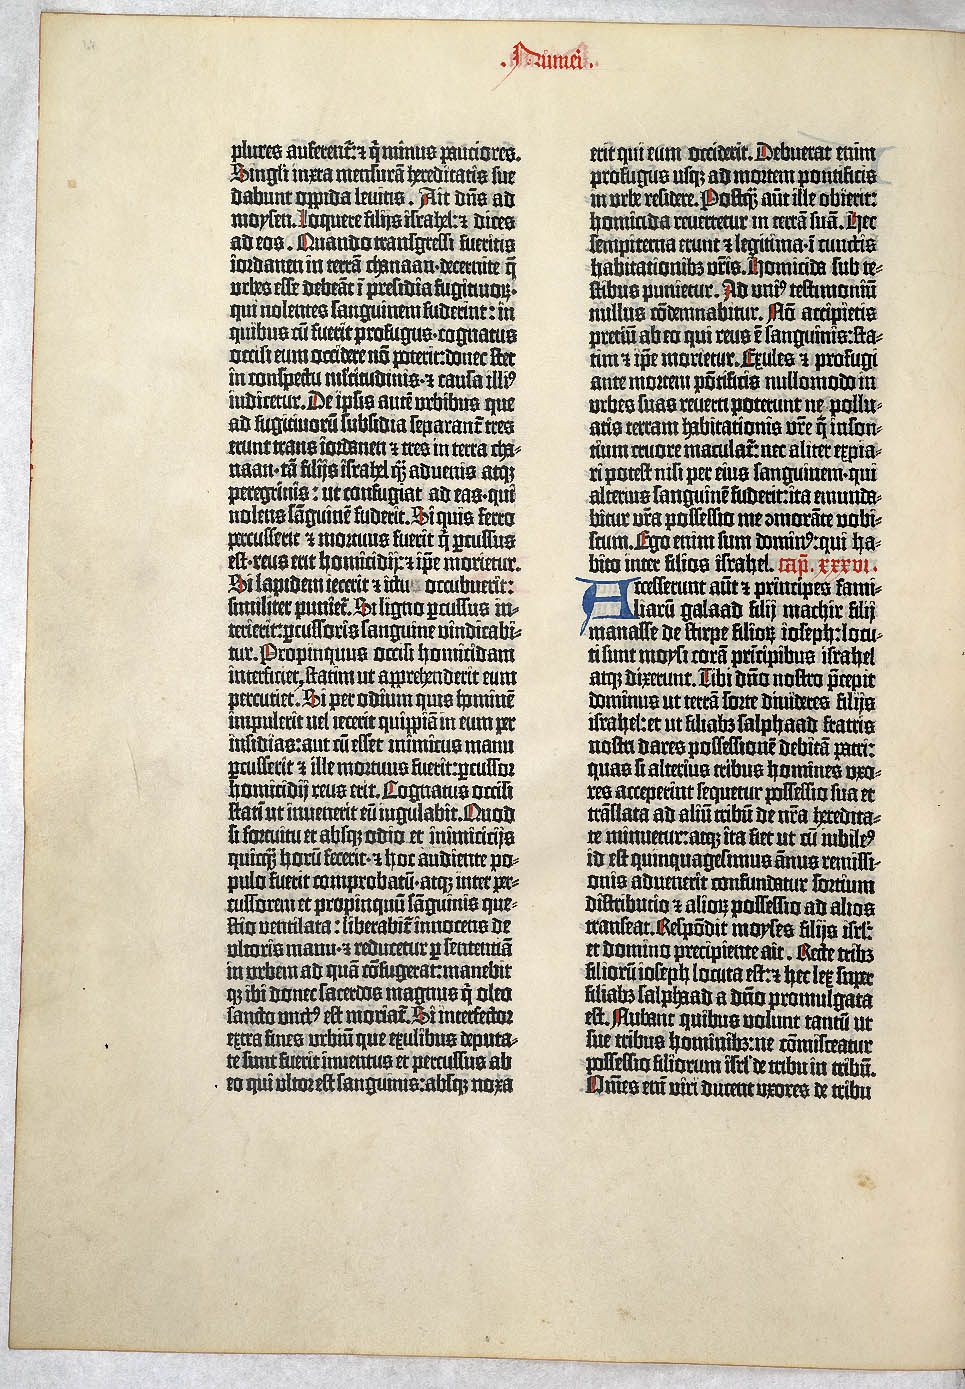 .Numeri.
plures auferent̃: ⁊ q̃ minus pauciores.
Singli iuxta mensurã hereditatis sue
dabunt oppida leuitis. Ait dñs ad
moysen. Loquere filijs israhel: ⁊ dices
ad eos. Quando transgressi fueritis
iordanen in terrã chanaan·decernite q̃
vrbes esse debeãt ĩ presidia fugitiuoꝝ·
qui nolentes sanguinem fuderint: in
quibus cũ fuerit profugus·cognatus
occisi eum occidere nõ poterit: donec stet
in conspectu ml̃titudinis·⁊ causa illiꝰ
iudicetur. De ipsis autẽ vrbibus que
ad fugitiuorũ subsidia separant̃ tres
erunt trans iordanen ⁊ tres in terra cha-
naan·tã filijs israhel q̃ꝫ aduenis atqꝫ
peregrinis: ut confugiat ad eas·qui
nolens sãguinẽ fuderit. Si quis ferro
percusserit ⁊ mortuus fuerit q̃ ꝑcussus
est·reus erit homicidij: ⁊ ip̃e morietur.
Si lapidem iecerit ⁊ ictu occubuerit:
similiter puniet̃. Si ligno ꝑcussus in-
terierit: ꝑcussoris sanguine vindicabi-
tur. Propinquus occisi homicidam
interficiet, statim ut apprehenderit eum
percutiet. Si per odium quis hominẽ
impulerit uel iecerit quippiã in eum per
insidias: aut cũ esset inimicus manu
ꝑcusserit ⁊ ille mortuus fuerit: ꝑcussor
homicidij reus erit. Cognatus occisi
statĩ ut inuenerit eũ iugulabit. Quod
si fortuitu et absqꝫ odio et inimicicijs
quicq̃ꝫ horũ fecerit·⁊ hoc audiente po-
pulo fuerit comprobatũ·atqꝫ inter per-
cussorem et propinquũ sãguinis que-
stio ventilata: liberabit̃ innocens de
vltoris manu·⁊ reducetur ꝑ sententiã
in vrbem ad quã cõfugerat: manebit
qꝫ ibi donec sacerdos magnus q̃ oleo
sancto vnctꝰ est moriat̃. Si interfector
extra fines vrbiũ que exulibus deputa-
te sunt fuerit inuentus et percussus ab
eo qui vltor est sanguinis: absqꝫ noxa
erit qui eum occiderit. Debuerat enim
profugus usqꝫ ad mortem pontificis
in vrbe residere. Postq̃ꝫ aũt ille obierit:
homicida reuertetur in terrã suã. Hec
sempiterna erunt ⁊ legitima·ĩ cunctis
habitationibꝫ vr̃is. Homicida sub te-
stibus punietur. Ad vniꝰ testimoniũ
nullus cõdemnabitur. Nõ accipietis
preciũ ab eo qui reus ẽ sanguinis: sta-
tim ⁊ ip̃e morietur. Exules ⁊ profugi
ante mortem põtificis nullomodo in
vrbes suas reuerti poterunt ne pollu-
atis terram habitationis vr̃e q̃ inson-
tium cruore maculat̃: nec aliter expia-
ri potest nisi per eius sanguinem·qui
alterius sanguinẽ fuderit: ita emunda-
bitur vr̃a possessio me ↄmorãte vobi-
scum. Ego enim sum dominꝰ: qui ha-
bito inter filios israhel. Cap̃. xxxvi.
Accesserunt aũt ⁊ principes fami-
liarũ galaad filij machir filij
manasse de stirpe filioꝝ ioseph: locu-
ti sunt moysi corã prĩcipibus israhel
atqꝫ dixerunt. Tibi dño nostro p̃cepit
dominus ut terrã sorte diuideres filijs
israhel: et ut filiabꝫ salphaad fratris
nostri dares possessionẽ debitã patri:
quas si alterius tribus homines vxo-
res acceperint sequetur possessio sua et
trãslata ad aliũ tribũ de nr̃a heredita-
te minuetur: atqꝫ ita fiet ut cũ iubileꝰ
id est quinquagesimus ãnus remissi-
onis aduenerit confundatur sortium
distributio ⁊ alioꝝ possessio ad alios
transeat. Respõdit moyses filijs isrl̃:
et domino precipiente ait. Recte tribꝫ
filiorũ ioseph locuta est: ⁊ hec lex super
filiabꝫ salphaad a dño promulgata
est. Nubant quibus volunt tantũ ut
sue tribus hominibꝫ: ne cõmisceatur
possessio filiorum isrl̃ de tribu in tribũ.
Om̃es enĩ viri ducent vxores de tribu